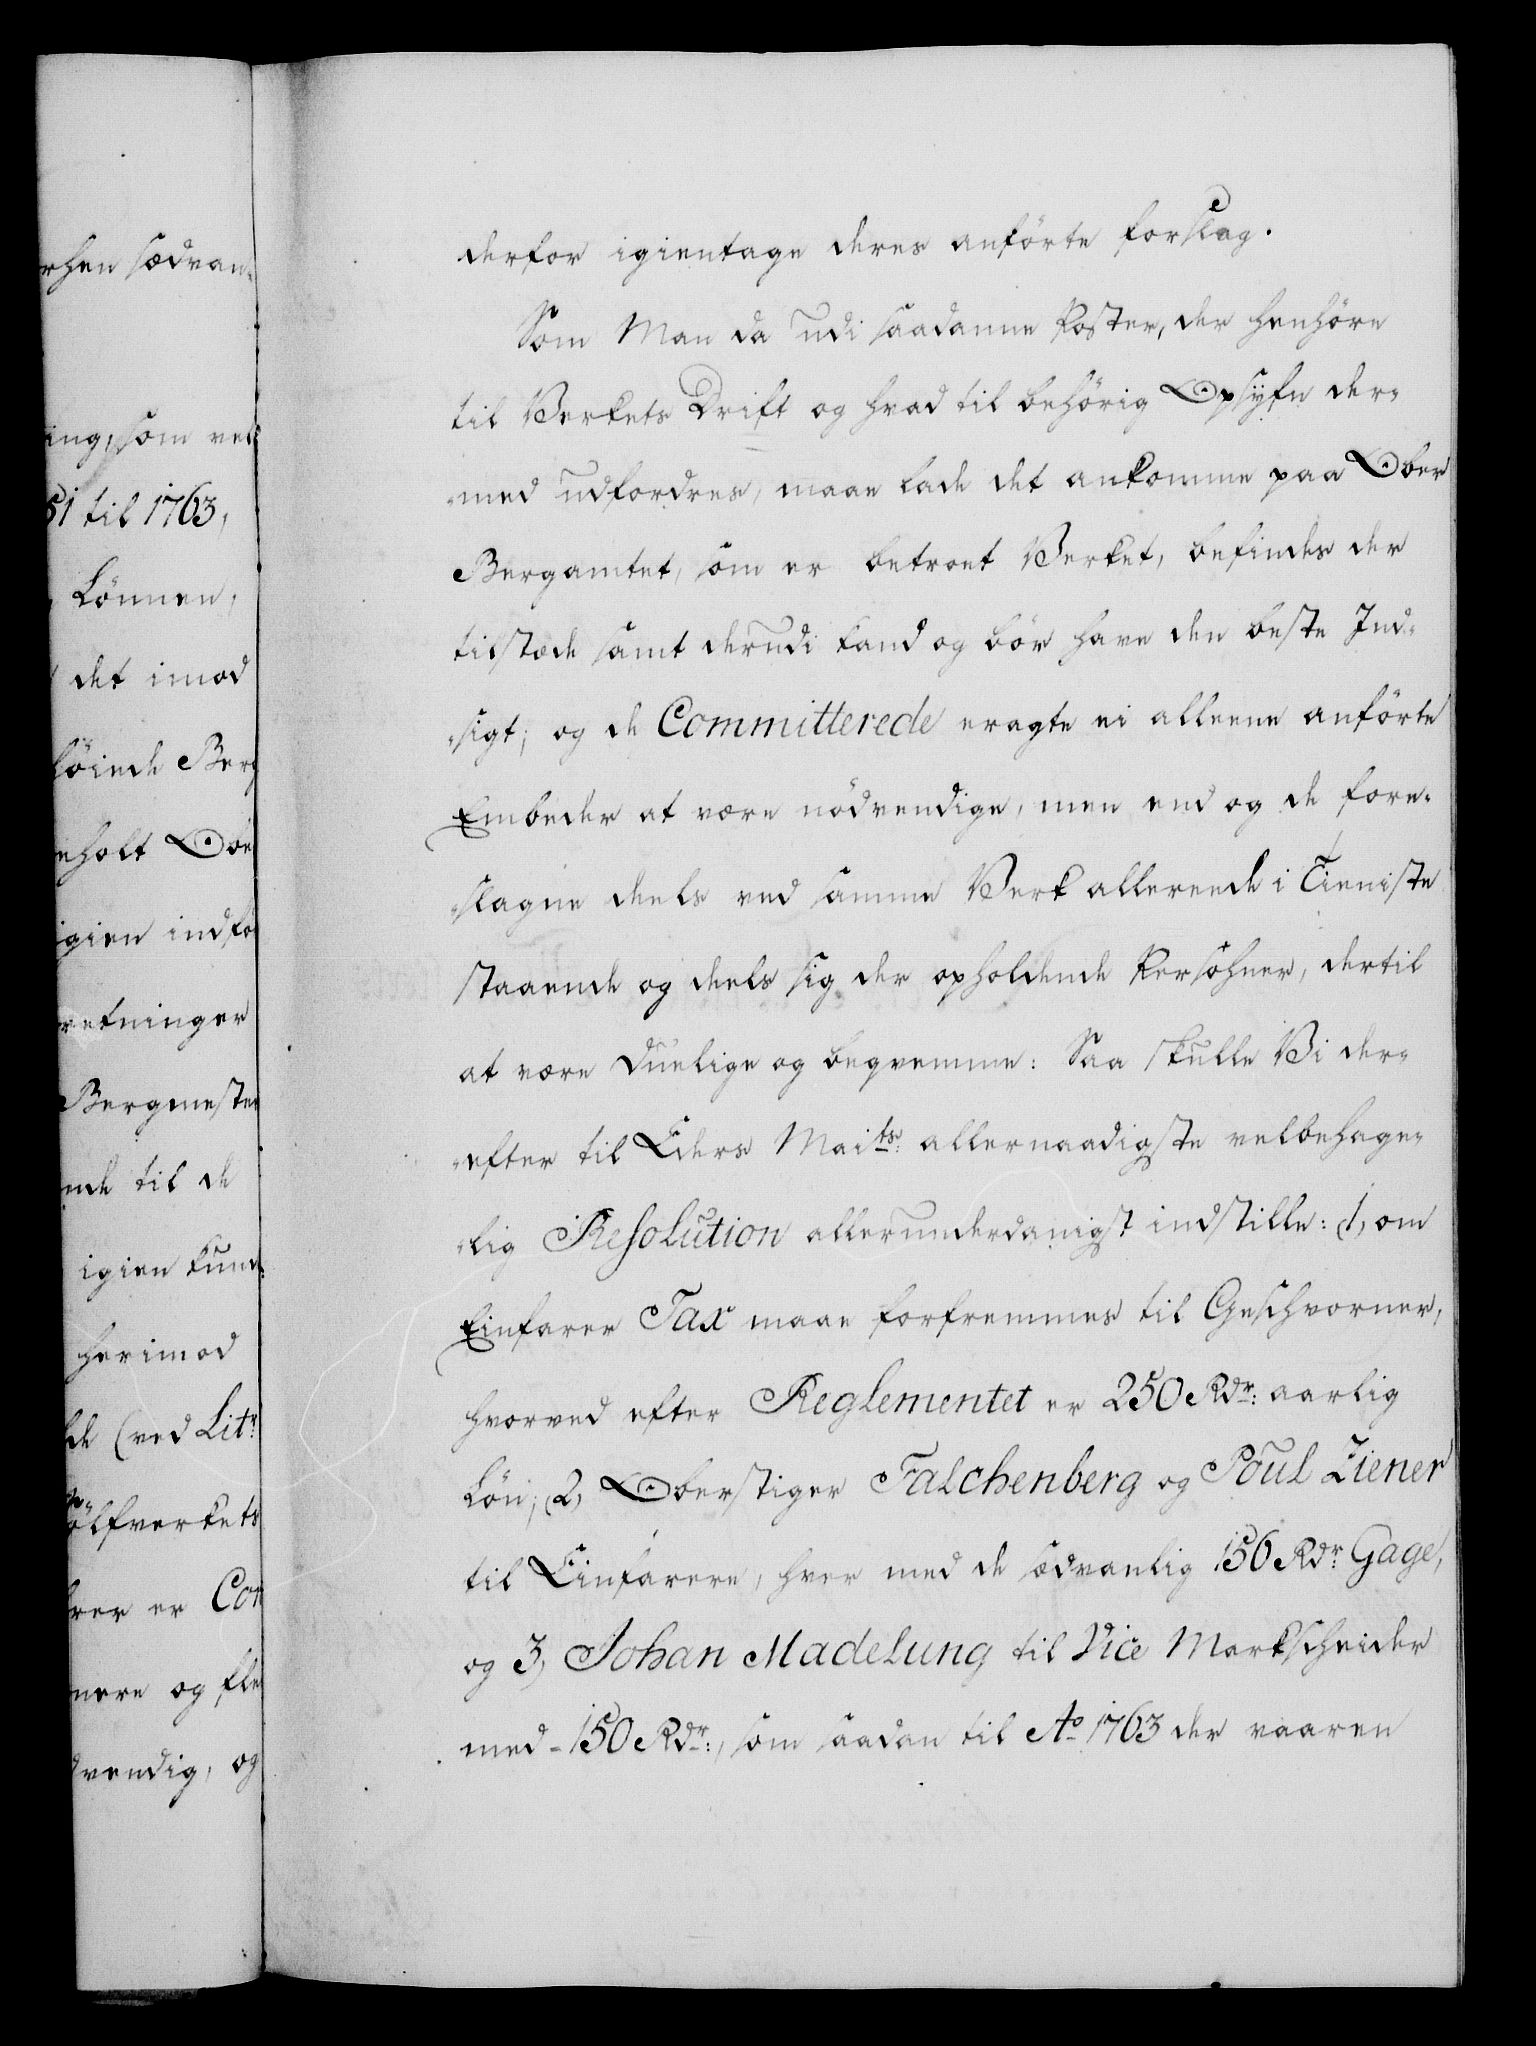 rhen sædvan-
ing, som vel
51 til 1763,
Lönnen,
det imod
höiede Berg
eholt Obe
igien indfö
retninger
Bergmester
nde til de
igien kund-
herimod
de (ved Litr
Sölfverkets
rer er Con
nere og fle
dvendig, og
derfor igientage deres anförte forslag.
Som Man da udi saadanne Poster, der henhöre
til Verkets Drift og hvad til behörig Opsyfn der-
-med udfordres, maae lade det ankomme paa Ober
Bergamtet, som er betroet Verket, befindes der
tilstæde samt derudi kand og bör have den beste Ind-
-sigt; og de Committerede eragte ei alleene anförte
Embeder at være nödvendige, men end og de fore-
-slagne deels ved samme Verk allereede i Tieniste
staaende og deels sig der opholdende Persohner, dertil
at være duelige og beqvemme: Saa skulle Vi der-
-efter til Eders Maits: allernaadigste velbehage-
-lig Resolution allerunderdanigst indstille: 1, om
Einfarer Tax maae forfremmes til Geschvorner,
hvorved efter Reglementet er 250 Rdr: aarlig
Lön; 2, Oberstiger Falchenberg og Poul Ziener
til Einfarere, hver med de sædvanlig 156 Rdr Gage,
og 3, Johan Madelung til Vice Markscheider
med 150 Rdr:, som saadan til Ao 1763 der vaaren